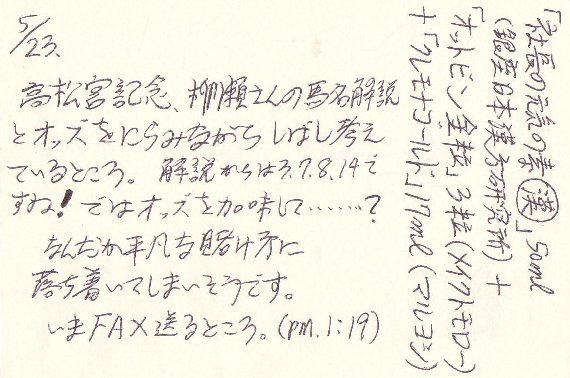 5/23.
高松宮記念、柳瀬さんの馬名解説
とオッズをにらみながらしばし考え
ているところ。解説からは3.7.8.14で
すね!ではオッズを加味して………?
なんだか平凡な賭け方に
落ち着いてしまいそうです。
いまFAX送るところ。(pm.1:19)
「社長の元気の素 漢」50ml
(銀座日本漢方研究所) +
「オットビン金粒」3粒(メイクトモロー)
+「クレモナゴールド」17ml(マルヨシ)